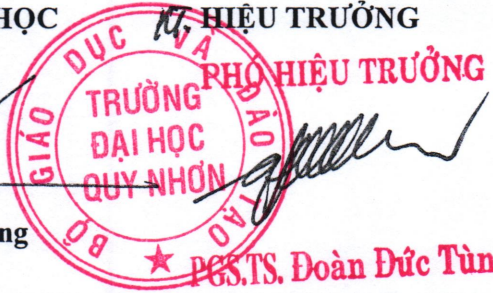 HỌC
KT. HIỆU TRƯỞNG
PHÓ HIỆU TRƯỞNG
BỘ GIÁO DỤC VÀ ĐÀO TẠO
TRƯỜNG
ĐẠI HỌC
QUY NHƠN
ng
PGS.TS. Đoàn Đức Tùn